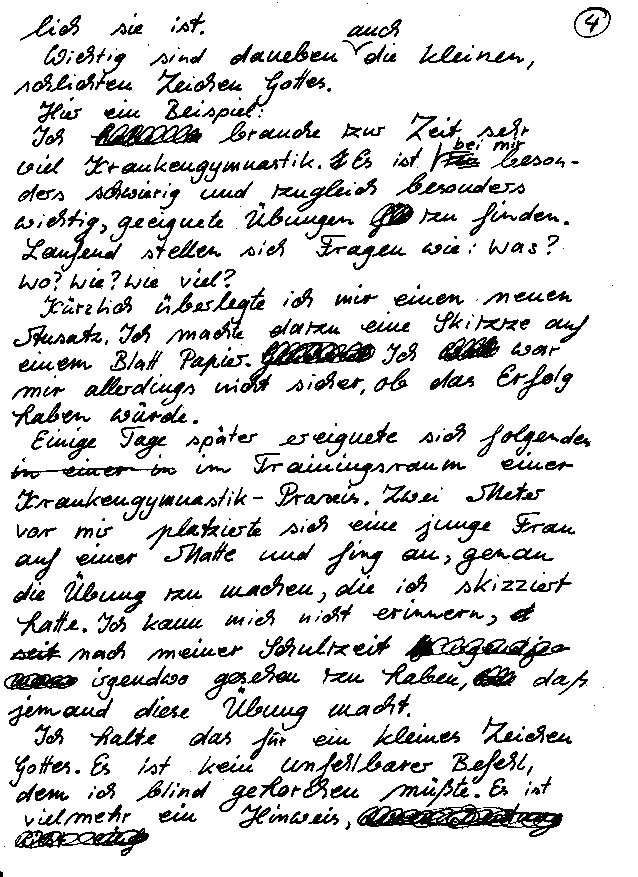 4
lich sie ist.
Wichtig sind daneben auch die kleinen,
schlichten Zeichen Gottes.
Hier ein Beispiel:
Ich brauche zur Zeit sehr
viel Krankengymnastik. Es ist bei mir beson-
ders schwierig und zugleich besonders
wichtig, geeignete Übungen zu finden.
Laufend stellen sich Fragen wie: Was?
Wo? Wie? Wie viel?
Kürzlich überlegte ich mir einen neuen
Ansatz. Ich machte dazu eine Skitzze auf
einem Blatt Papier. Ich war
mir allerdings nicht sicher, ob das Erfolg
haben würde.
Einige Tage später ereignete sich folgendes
in einer in im Trainingsraum einer
Krankengymnastik-Praxis. Zwei Meter
vor mir platzierte sich eine junge Frau
auf einer Matte und fing an, genau
die Übung zu machen, die ich skizziert
hatte. Ich kann mich nicht erinnern,
seit nach meiner Schulzeit
irgendwo gesehen zu haben, daß
jemand diese Übung macht.
Ich halte das für ein kleines Zeichen
Gottes. Es ist kein unfehlbarer Befehl,
dem ich blind gehorchen müßte. Es ist
vielmehr ein Hinweis,